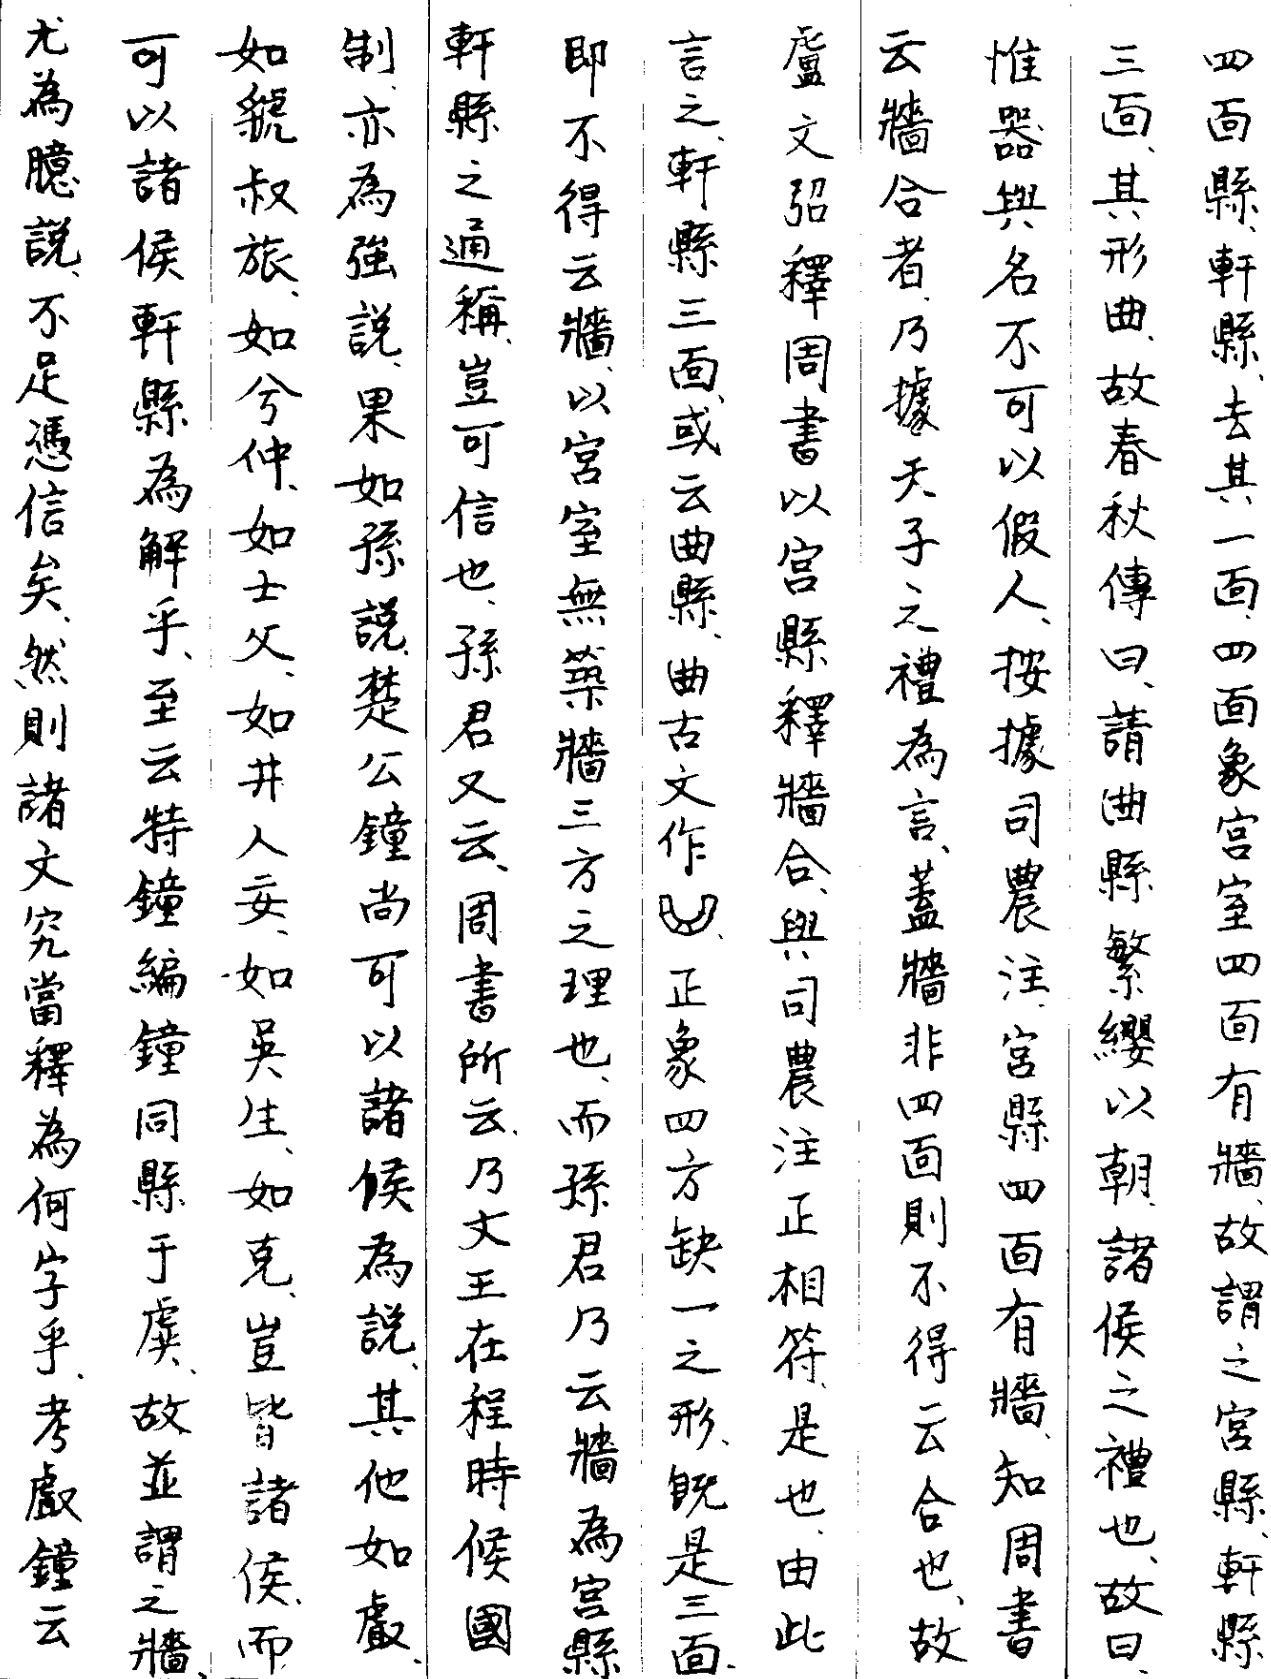 四面縣、軒縣、去其一面、四面象宮室四面有牆、故謂之宮縣、軒縣
三面、其形曲、故春秋傳曰、請曲縣繁纓以朝、諸侯之禮也、故曰、
惟器與名不可以假人、按據司農注、宮縣四面有牆、知周書
云牆合者、乃據天子之禮為言、蓋牆非四面則不得云合也、故
盧文弨釋周書以宮縣釋牆合、與司農注正相符、是也、由此
言之、軒縣三面、或云曲縣、曲古文作、正象四方缺一之形、既是三面、
即不得云牆、以宮室無築牆三方之理也、而孫君乃云牆為宮縣
軒縣之通稱、豈可信也、孫君又云、周書所云、乃文王在程時候國
制、亦為強説、果如孫説、楚公鐘尚可以諸侯為説、其他如䖒、
如虢叔旅、如兮仲、如士父、如井人妄、如吳生、如克、豈皆諸侯、而
可以諸侯軒縣為解乎、至云特鐘編鐘同縣于虡、故並謂之牆、
尤為臆説、不足憑信矣、然則諸文究當釋為何字乎、考䖒鐘云